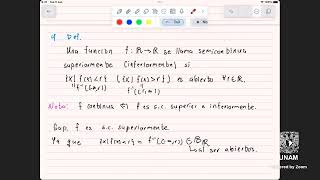 Def.
Una función f: ℝ→ℝ se llama semicontinua
superiormente (inferiormente) si
{x| f(x)<r} ({x| f(x)>r}) es abierto ∀r∈ℝ.
Nota: f continua ⟺ f es s.c. superior e inferiormente.
Sup. f es s.c. superiormente
Ya que {x|f(x)<r} = f⁻¹((-∞,r)) ∈ 𝔅ℝ
al ser abiertos.
UNAM